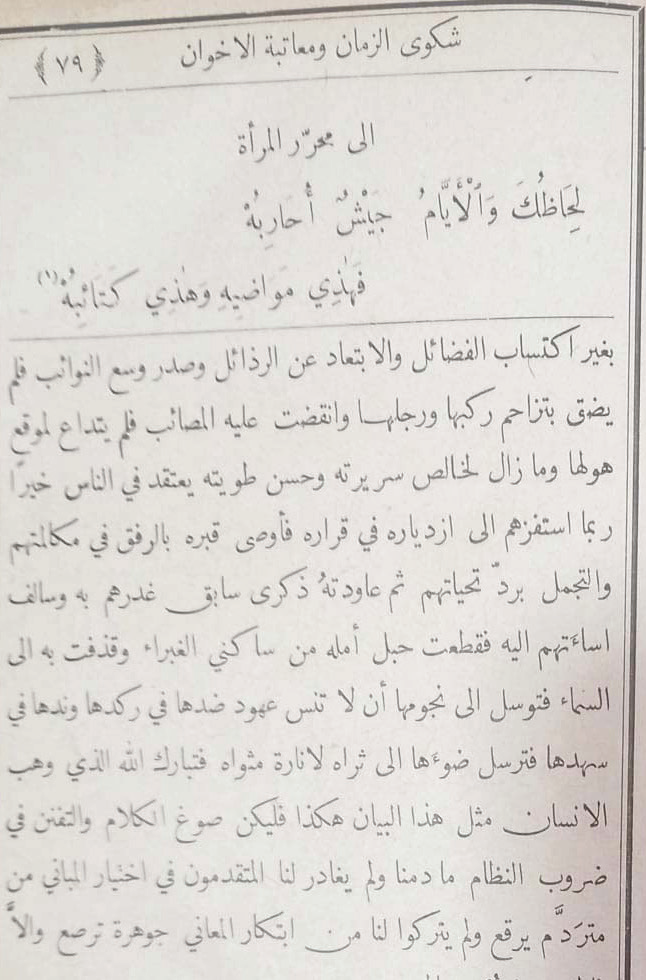 شكوى الزمان ومعاتبة الاخوان ﴿ ٧٩ ﴾
الى محرّر المرأة
لِحَاظُكَ وَٱلْأَيَّامُ جَيْشٌ أُحَارِبُهُ
فَهٰذِي مَوَاضِيهِ وَهٰذِي كَتَائِبُهُ (١)
بغير اكتساب الفضائل والابتعاد عن الرذائل وصدر وسع النوائب فلم
يضق بتزاحم ركبها ورجلها وانقضت عليه المصائب فلم يتداع لموقع
هولها وما زال لخالص سريرته وحسن طويته يعتقد في الناس خيرًا
ربما استفزهم الى ازدياره في قراره فأوصى قبره بالرفق في مكالمتهم
والتجمل بردّ تحياتهم ثم عاودتهُ ذكرى سابق غدرهم به وسالف
اساءتهم اليه فقطعت حبل أمله من ساكني الغبراء وقذفت به الى
السماء فتوسل الى نجومها أن لا تنس عهود ضدها في ركدها وندها في
سهدها فترسل ضوءها الى ثراه لانارة مثواه فتبارك الله الذي وهب
الانسان مثل هذا البيان هكذا فليكن صوغ الكلام والتفنن في
ضروب النظام ما دمنا ولم يغادر لنا المتقدمون في اختيار المباني من
متردَّم يرقع ولم يتركوا لنا من ابتكار المعاني جوهرة ترصع والاَّ